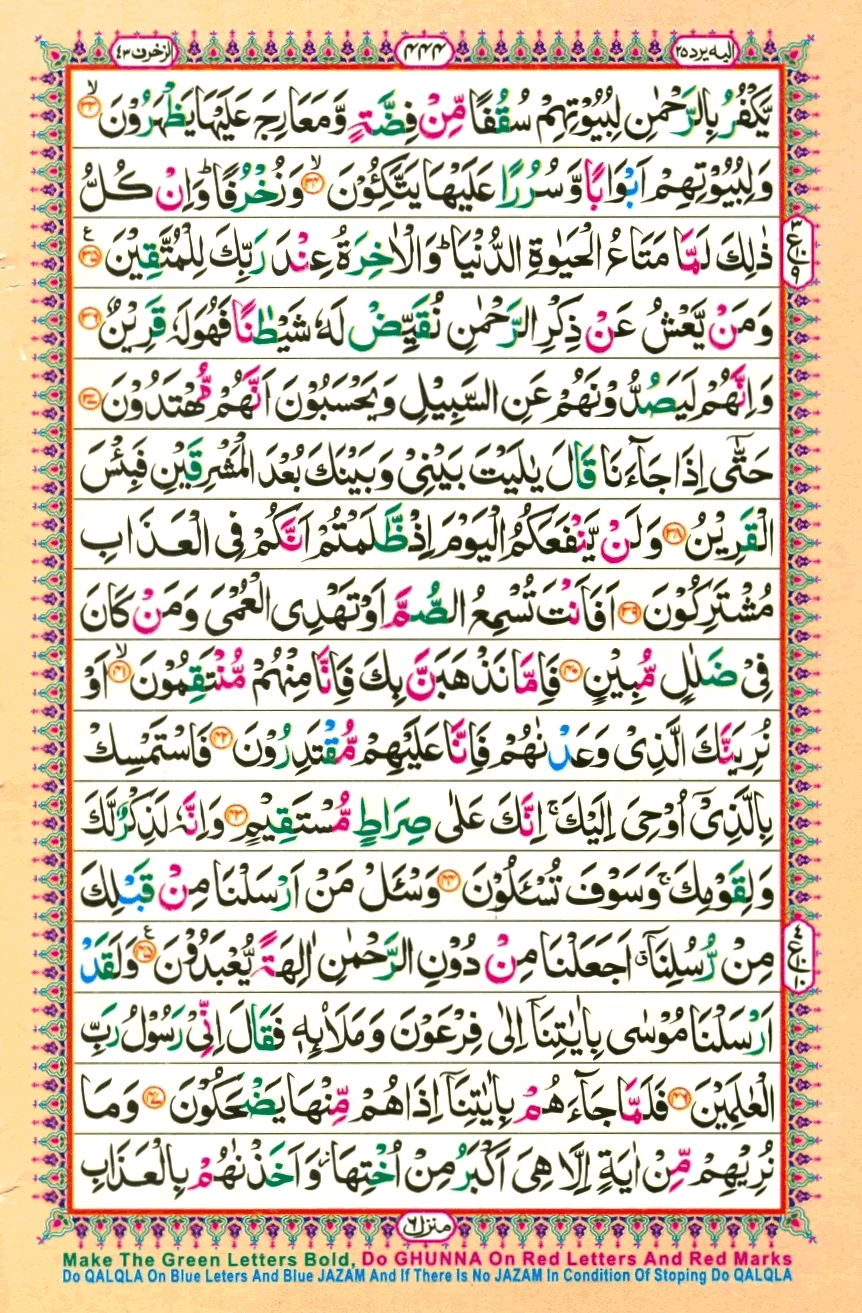 الزخرف ٤٣
٤٤٤
اليه يرد ٢٥
يَّكْفُرُ بِالرَّحْمٰنِ لِبُيُوْتِهِمْ سُقُفًا مِّنْ فِضَّةٍ وَّمَعَارِجَ عَلَيْهَا يَظْهَرُوْنَ ۙ﴿۳۳﴾
وَلِبُيُوْتِهِمْ اَبْوَابًا وَّسُرُرًا عَلَيْهَا يَتَّكِـُٔوْنَ ۙ﴿۳۴﴾ وَزُخْرُفًا ؕ وَاِنْ كُلُّ
ذٰلِكَ لَمَّا مَتَاعُ الْحَيٰوةِ الدُّنْيَا ؕ وَالْاٰخِرَةُ عِنْدَ رَبِّكَ لِلْمُتَّقِيْنَ ﴿۳۵﴾ ع
وَمَنْ يَّعْشُ عَنْ ذِكْرِ الرَّحْمٰنِ نُقَيِّضْ لَهٗ شَيْطٰنًا فَهُوَ لَهٗ قَرِيْنٌ ﴿۳۶﴾
وَاِنَّهُمْ لَيَصُدُّوْنَهُمْ عَنِ السَّبِيْلِ وَيَحْسَبُوْنَ اَنَّهُمْ مُّهْتَدُوْنَ ﴿۳۷﴾
حَتّٰٓى اِذَا جَآءَنَا قَالَ يٰلَيْتَ بَيْنِيْ وَبَيْنَكَ بُعْدَ الْمَشْرِقَيْنِ فَبِئْسَ
الْقَرِيْنُ ﴿۳۸﴾ وَلَنْ يَّنْفَعَكُمُ الْيَوْمَ اِذْ ظَّلَمْتُمْ اَنَّكُمْ فِى الْعَذَابِ
مُشْتَرِكُوْنَ ﴿۳۹﴾ اَفَاَنْتَ تُسْمِعُ الصُّمَّ اَوْ تَهْدِى الْعُمْىَ وَمَنْ كَانَ
فِيْ ضَلٰلٍ مُّبِيْنٍ ﴿۴۰﴾ فَاِمَّا نَذْهَبَنَّ بِكَ فَاِنَّا مِنْهُمْ مُّنْتَقِمُوْنَ ۙ﴿۴۱﴾ اَوْ
نُرِيَنَّكَ الَّذِيْ وَعَدْنٰهُمْ فَاِنَّا عَلَيْهِمْ مُّقْتَدِرُوْنَ ﴿۴۲﴾ فَاسْتَمْسِكْ
بِالَّذِيْۤ اُوْحِىَ اِلَيْكَ ۚ اِنَّكَ عَلٰى صِرَاطٍ مُّسْتَقِيْمٍ ﴿۴۳﴾ وَاِنَّهٗ لَذِكْرٌ لَّكَ
وَلِقَوْمِكَ ۚ وَسَوْفَ تُسْـَٔلُوْنَ ﴿۴۴﴾ وَسْـَٔلْ مَنْ اَرْسَلْنَا مِنْ قَبْلِكَ
مِنْ رُّسُلِنَاۤ ق اَجَعَلْنَا مِنْ دُوْنِ الرَّحْمٰنِ اٰلِهَةً يُّعْبَدُوْنَ ﴿۴۵﴾ ع وَلَقَدْ
اَرْسَلْنَا مُوْسٰى بِاٰيٰتِنَاۤ اِلٰى فِرْعَوْنَ وَمَلَا۟ىِٕهٖ فَقَالَ اِنِّيْ رَسُوْلُ رَبِّ
الْعٰلَمِيْنَ ﴿۴۶﴾ فَلَمَّا جَآءَهُمْ بِاٰيٰتِنَاۤ اِذَا هُمْ مِّنْهَا يَضْحَكُوْنَ ﴿۴۷﴾ وَمَا
نُرِيْهِمْ مِّنْ اٰيَةٍ اِلَّا هِىَ اَكْبَرُ مِنْ اُخْتِهَا ؗ وَاَخَذْنٰهُمْ بِالْعَذَابِ
٣ ع ٩
٤ ع ١٠
منزل ٦
Make The Green Letters Bold, Do GHUNNA On Red Letters And Red Marks
Do QALQLA On Blue Leters And Blue JAZAM And If There Is No JAZAM In Condition Of Stoping Do QALQLA